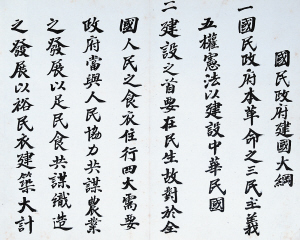 國民政府建國大綱
一國民政府本革命之三民主義
五權憲法以建設中華民國
二建設之首要在民生故對於全
國人民之食衣住行四大需要
政府當與人民協力共謀農業
之發展以足民食共謀織造
之發展以裕民衣建築大計